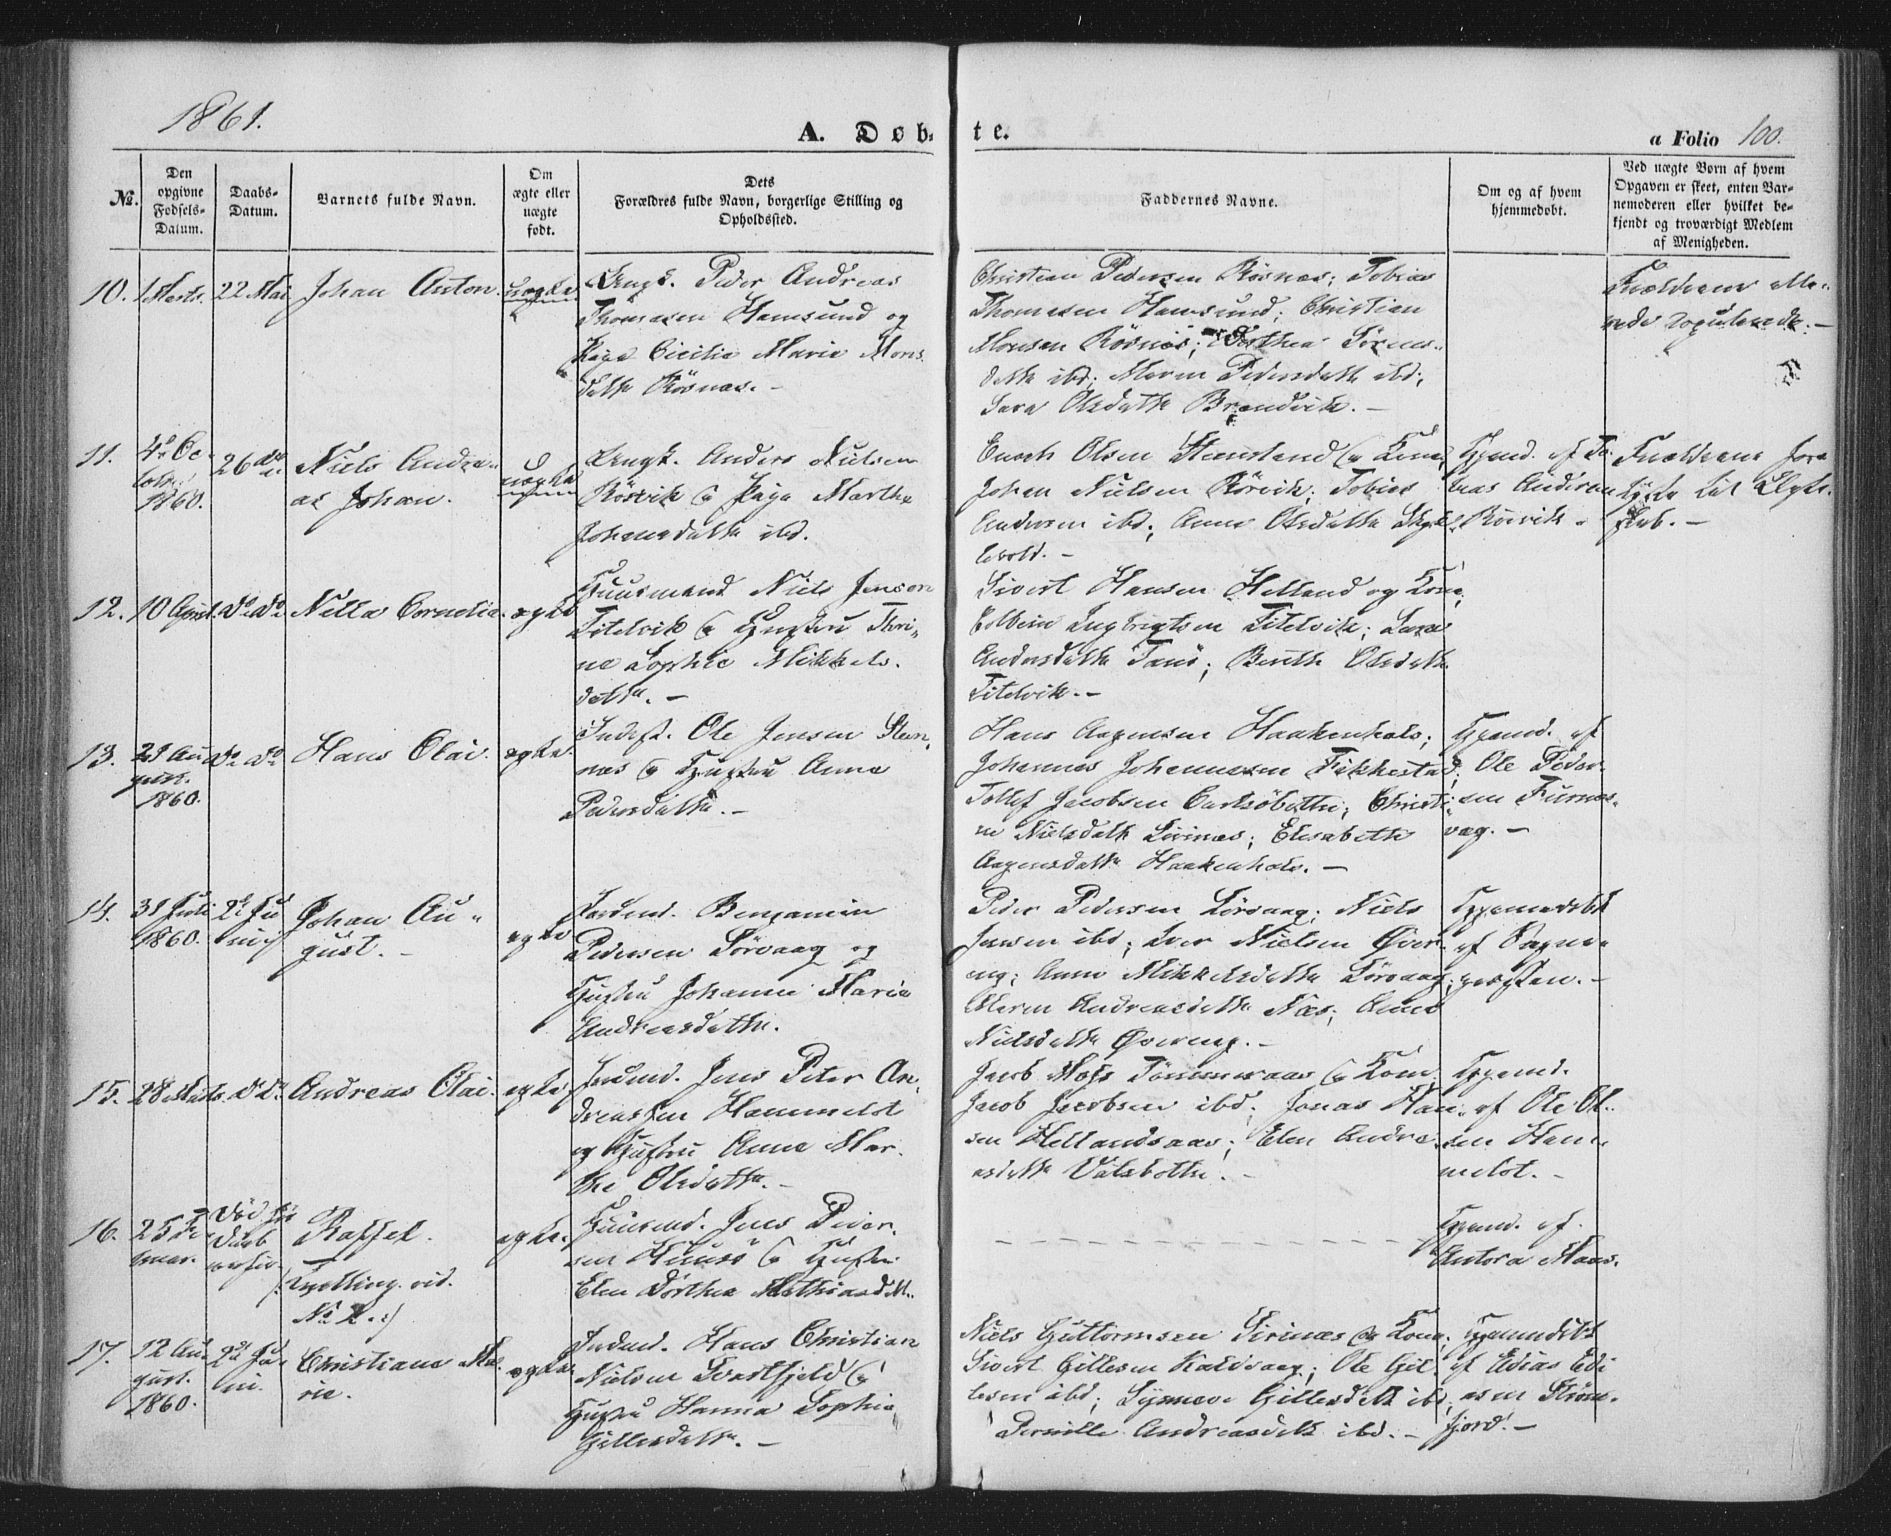 1861.
A. Døb-
te.
a Folio 100.
No.
Den
opgivne
Fødsels-
Datum.
Daabs-
Datum.
Barnets fulde Navn.
Om
ægte eller
uægte
født.
Dets
Forældres fulde Navn, borgerlige Stilling og
Opholdssted.
Faddernes Navne.
Om og af hvem
hjemmedøbt.
Ved uægte Børn af hvem
Opgaven er skeet, enten Bar-
nemoderen eller hvilket be-
kjendt og troværdigt Medlem
af Menigheden.
10.
1 Marts.
22 Mai
Johan Anton.
uægte
Ungk. Peder Andreas
Thomasen Hamsund og
Pige Cicilie Marie Mons
datte Rösnæs. -
Christian Pedersen Rösnæs; Tobias
Thomasen Hamsund; Christian
Monsen Rösnæs; Dorthea
datte ibd; Maren Pedersdatte ibd;
Sara Olsdatte Brændvik. -
Forældrene
11.
4de Oc-
tobr.
1860.
26 do
Niels Andre-
as Johan.
uægte
Ungk. Anders Nielsen
Rörvik & Pige Marthe
Johansdatte ibd.
Enoch Olsen & Kone;
Johan Nielsen Rörvik; Tobias
Andersen ibd; Anne Olsdatte
Hjemd. af To-
bias Andersen
Rörvik.
Forældrene
til Ægte-
skab. -
12.
10 April.
do do
Nella Cornelia.
ægte
Huusmand Niels Jenson
Titelvik & Hustru Thri-
ne Sophie Mikkels-
datte. -
Sivert Hansen Helland og Kone;
Ingbrigtsen Titelvik; Sara
Andersdatte Tanö; Berith Olsdatte
Titelvik. -
13.
21 Au-
gust.
1860.
do do
Hans Olai.
ægte.
Inderst. Ole Jensen
næs & Hustru Anne
Pedersdatte. -
Hans Aagensen Haakenhals;
Johannes Johannesen Fikkestad;
Tollef Jacobsen; Christi-
ne Nielsdatte; Elisabeth
Aagensdatte Haakenhals. -
Hjemd. af
Ole Peder-
sen Furnes-
vag. -
14.
31 Juli
1860.
2de Ju-
ni
Johan Au-
gust. -
ægte
Benjamin
Pedersen Sörvaag og
Hustru Johanne Maria
Andreasdatte.
Peder Pedersen Sörvaag; Niels
Jensen ibd; Iver Nielsen Øver-
eng; Anne Mikkelsdatte Sörvaag;
Maren Andreasdatte Næs; Anne
Nielsdatte Øvereng. -
Hjemmedöbt
af Sogne-
præsten. -
15.
28 Marts.
do do
Andreas Olai.
ægte
Jens Peter An-
dreassen Hammelöt
og Hustru Anne Mar-
the Olsdatte. -
Jacob Tömmeraas & Kone;
Jacob Jacobsen ibd; Jonas Han-
sen Hellandsaas; Elen Andre-
asdatte Valsbotten. -
Hjemd.
af Ole Ol-
sen Ham-
melöt. -
16.
25 Fe-
bruar.
Död för
Raffel.
(: Tvilling. vid.
No 2. :)
ægte.
Huusmd. Jens Peder-
sen & Hustru
Elen Dorthea Mathiasdatte.
Hjemd. af
Antora Maas.
17.
12 Au-
gust.
1860.
2de Ju-
ni.
Christiane Ma-
rie.
ægte
Hans Christian
Nielsen Svartfjeld &
Hustru Hanna Sophie
Gillesdatte. -
Niels Guttormsen & Kone;
Sivert Gillesen Kaldvaag; Ole Gil-
lesen ibd; Synneve Gillesdatte ibd;
Pernille Andreasdatte ibd. -
Hjemmedöbt
af Edias Edi-
asen Ström-
fjord. -